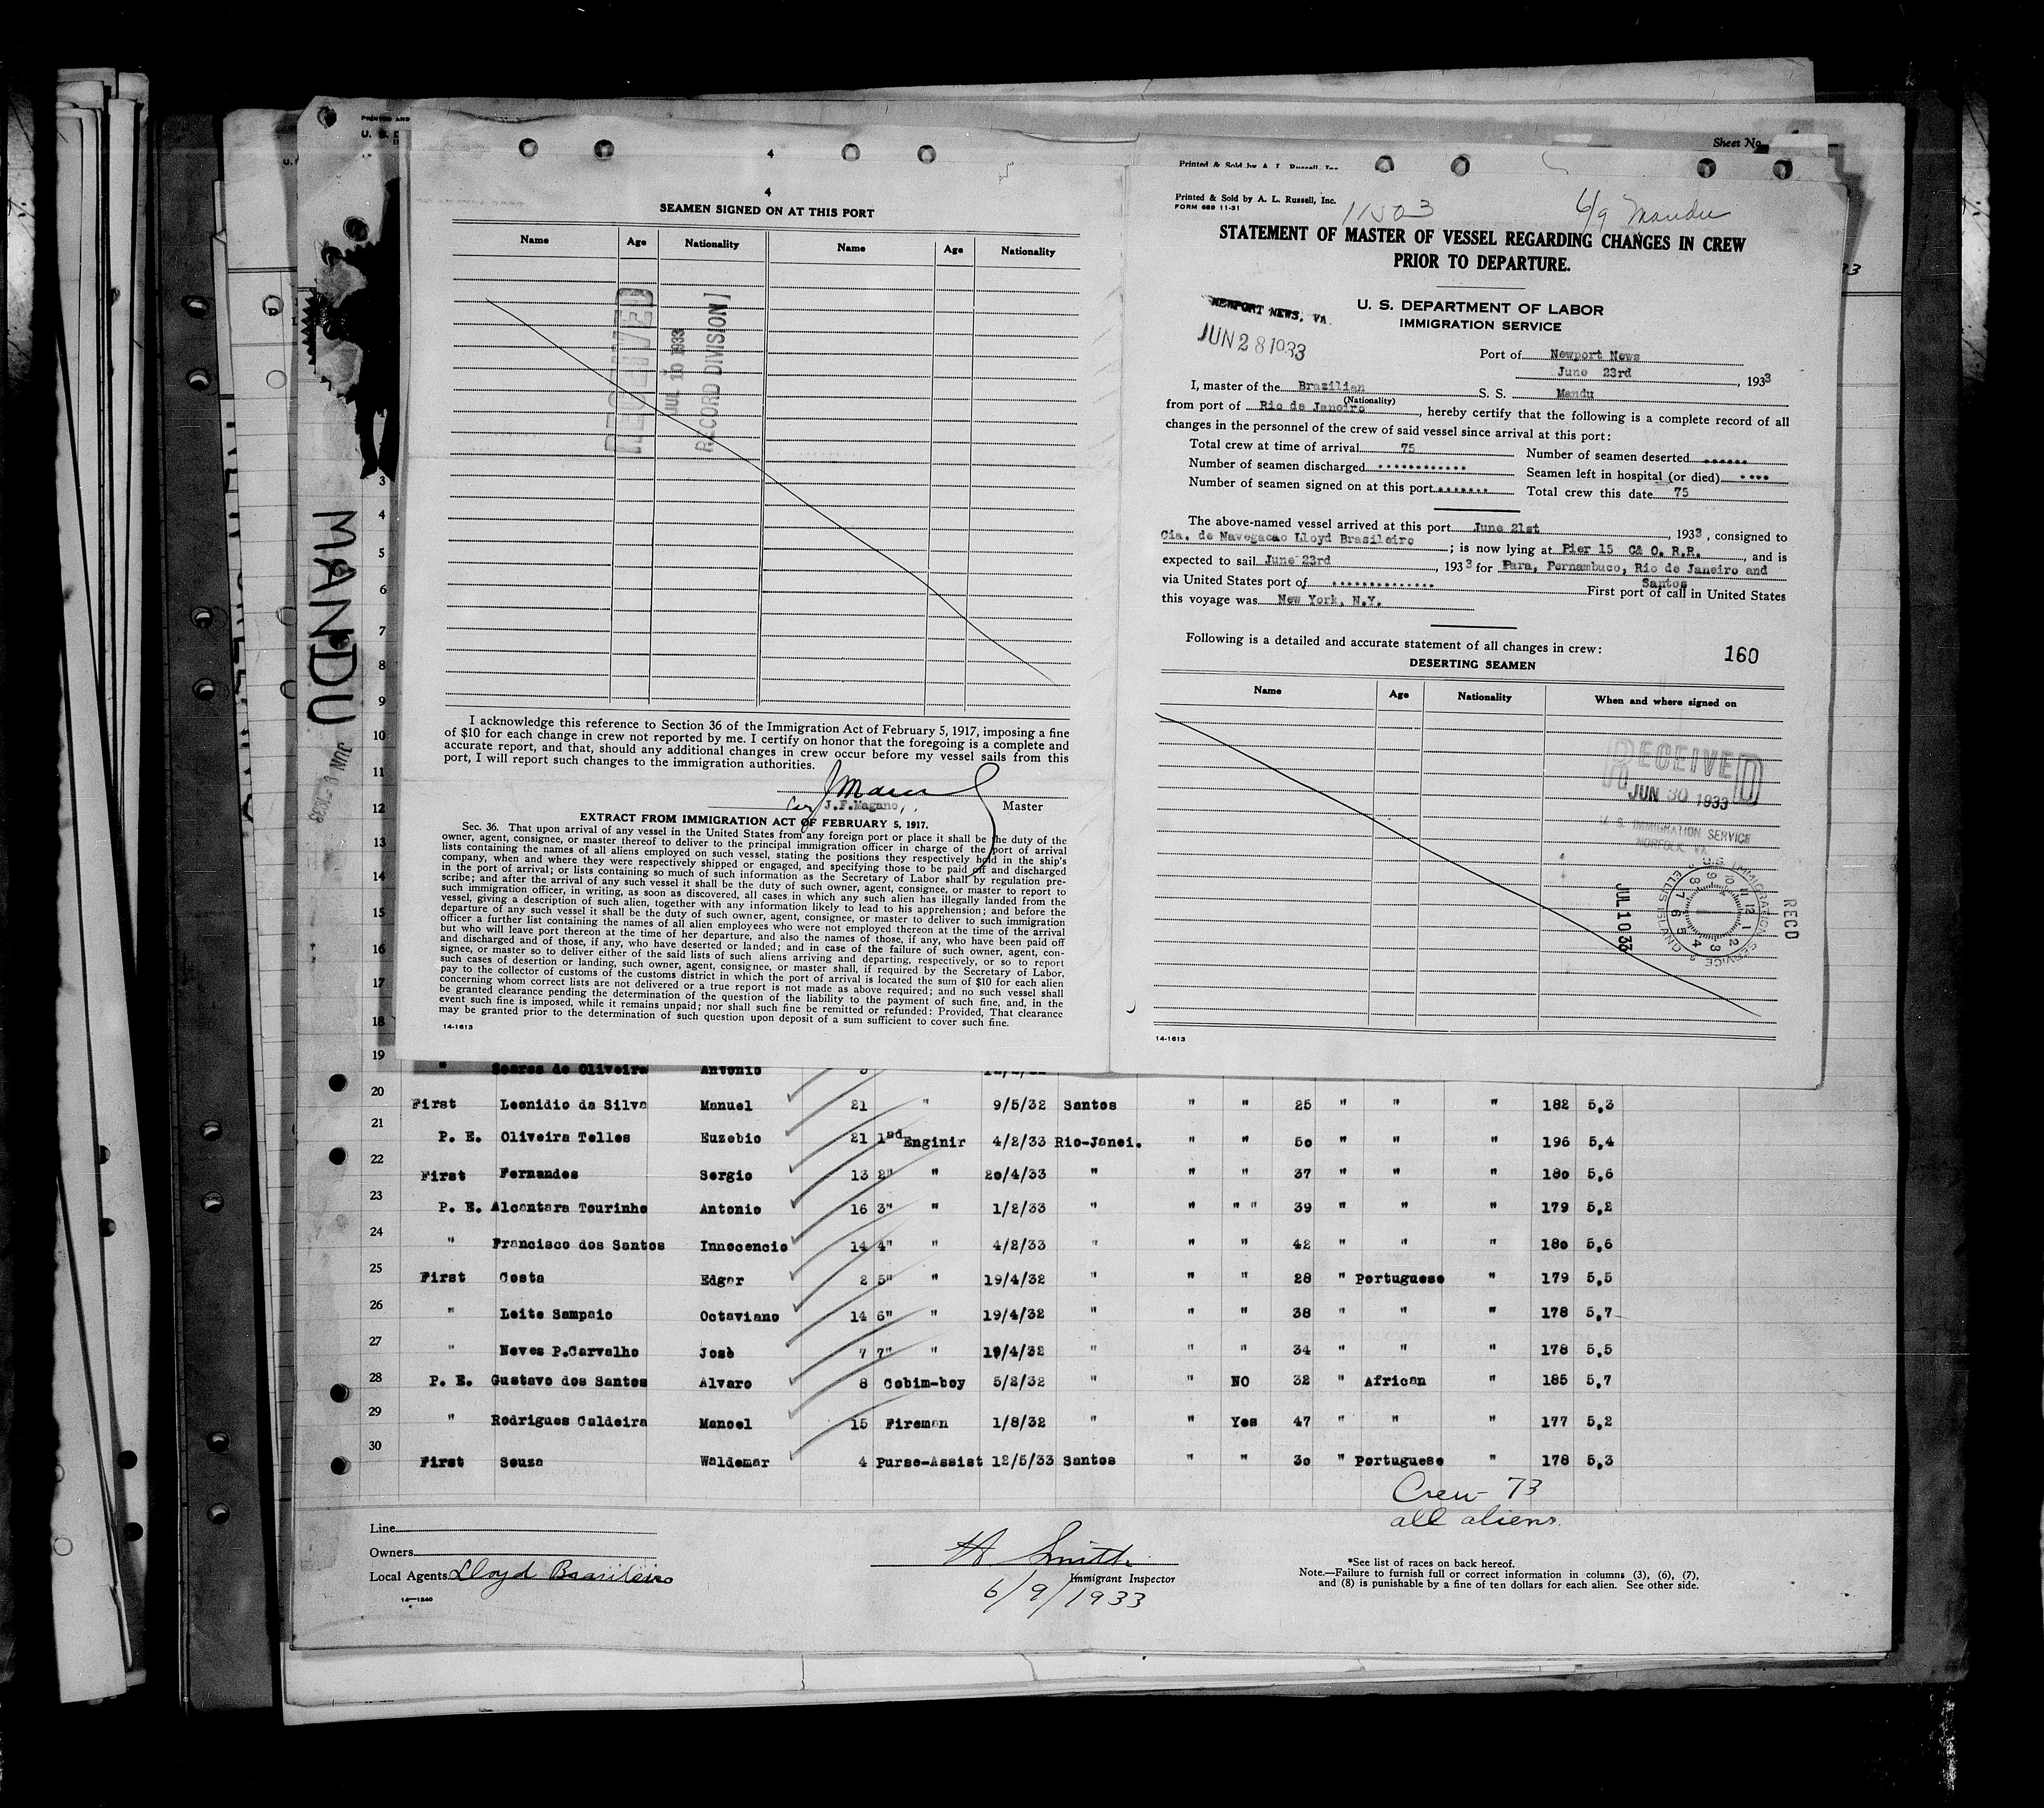 4
4
SEAMEN SIGNED ON AT THIS PORT
Name Age Nationality Name Age Nationality
RECEIVED
JUL 10 1933
RECORD DIVISION
I acknowledge this reference to Section 36 of the Immigration Act of February 5, 1917, imposing a fine
of $10 for each change in crew not reported by me. I certify on honor that the foregoing is a complete and
accurate report, and that, should any additional changes in crew occur before my vessel sails from this
port, I will report such changes to the immigration authorities.
J.F.Magano, Master
EXTRACT FROM IMMIGRATION ACT OF FEBRUARY 5, 1917.
Sec. 36. That upon arrival of any vessel in the United States from any foreign port or place it shall be the duty of the
owner, agent, consignee, or master thereof to deliver to the principal immigration officer in charge of the port of arrival
lists containing the names of all aliens employed on such vessel, stating the positions they respectively hold in the ship's
company, when and where they were respectively shipped or engaged, and specifying those to be paid off and discharged
in the port of arrival; or lists containing so much of such information as the Secretary of Labor shall by regulation pre-
scribe; and after the arrival of any such vessel it shall be the duty of such owner, agent, consignee, or master to report to
such immigration officer, in writing, as soon as discovered, all cases in which any such alien has illegally landed from the
vessel, giving a description of such alien, together with any information likely to lead to his apprehension; and before the
departure of any such vessel it shall be the duty of such owner, agent, consignee, or master to deliver to such immigration
officer a further list containing the names of all alien employees who were not employed thereon at the time of the arrival
but who will leave port thereon at the time of her departure, and also the names of those, if any, who have been paid off
and discharged and of those, if any, who have deserted or landed; and in case of the failure of such owner, agent, con-
signee, or master so to deliver either of the said lists of such aliens arriving and departing, respectively, or so to report
such cases of desertion or landing, such owner, agent, consignee, or master shall, if required by the Secretary of Labor,
pay to the collector of customs of the customs district in which the port of arrival is located the sum of $10 for each alien
concerning whom correct lists are not delivered or a true report is not made as above required; and no such vessel shall
be granted clearance pending the determination of the question of the liability to the payment of such fine, and, in the
event such fine is imposed, while it remains unpaid; nor shall such fine be remitted or refunded: Provided, That clearance
may be granted prior to the determination of such question upon deposit of a sum sufficient to cover such fine.
14-1613
Sheet No.
Printed & Sold by A. L. Russell, Inc.
Printed & Sold by A. L. Russell, Inc.
FORM 689 11-31
11503
6/9 Mandu
STATEMENT OF MASTER OF VESSEL REGARDING CHANGES IN CREW
PRIOR TO DEPARTURE.
U. S. DEPARTMENT OF LABOR
IMMIGRATION SERVICE
NEWPORT NEWS, VA.
JUN 28 1933
Port of Newport News
June 23rd, 1933
I, master of the Brazilian S. S. Mandu
(Nationality)
from port of Rio de Janeiro, hereby certify that the following is a complete record of all
changes in the personnel of the crew of said vessel since arrival at this port:
Total crew at time of arrival 75 Number of seamen deserted
Number of seamen discharged Seamen left in hospital (or died)
Number of seamen signed on at this port Total crew this date 75
The above-named vessel arrived at this port June 21st, 1933, consigned to
Cia. de Navegacao Lloyd Brasileiro; is now lying at Pier 15 C& O. R.R., and is
expected to sail June 23rd, 1933 for Para, Pernambuco, Rio de Janeiro and
Santos
via United States port of First port of call in United States
this voyage was New York, N.Y.
Following is a detailed and accurate statement of all changes in crew:
160
DESERTING SEAMEN
Name Age Nationality When and where signed on
RECEIVED
JUN 30 1933
U S IMMIGRATION SERVICE
NORFOLK, VA.
U.S. IMMIGRATION SERVICE
ELLIS ISLAND
RECD
JUL 10 33
14-1613
MANDU
3
4
5
6
7
8
9
10
11
12
13
14
15
16
17
18
19 " Soares de Oliveira Antonio
20 First Leonidio da Silva Manuel 21 " 9/5/32 Santos " " 25 " " " 182 5,3
21 P. E. Oliveira Telles Euzebio 21 1nd Enginir 4/2/33 Rio-Janei. " " 50 " " " 196 5,4
22 First Fernandes Sergio 13 2" " 20/4/33 " " " 37 " " " 180 5,6
23 P. E. Alcantara Tourinho Antonio 16 3" " 1/2/33 " " " " 39 " " " 179 5,2
24 " Francisco dos Santos Innocencio 14 4" " 4/2/33 " " " 42 " " " 180 5,6
25 First Costa Edgar 2 5" " 19/4/32 " " " 28 " Portuguese " 179 5,5
26 " Leite Sampaio Octaviano 14 6" " 19/4/32 " " " 38 " " " 178 5,7
27 " Neves P.Carvalho Josè 7 7" " 19/4/32 " " " 34 " " " 178 5,5
28 P. E. Gustavo dos Santos Alvaro 8 Cobim-boy 5/2/32 " " NO 32 " African " 185 5,7
29 " Rodrigues Caldeira Manoel 15 Fireman 1/8/32 " " Yes 47 " " " 177 5,2
30 First Souza Waldemar 4 Purse-Assist 12/5/33 Santos " " 30 " Portuguese " 178 5,3
Crew 73
all aliens
Line
Owners
Local Agents Lloyd Brasileiro
14-1240
H Smith
Immigrant Inspector
6/9/1933
*See list of races on back hereof.
Note.—Failure to furnish full or correct information in columns (3), (6), (7),
and (8) is punishable by a fine of ten dollars for each alien. See other side.